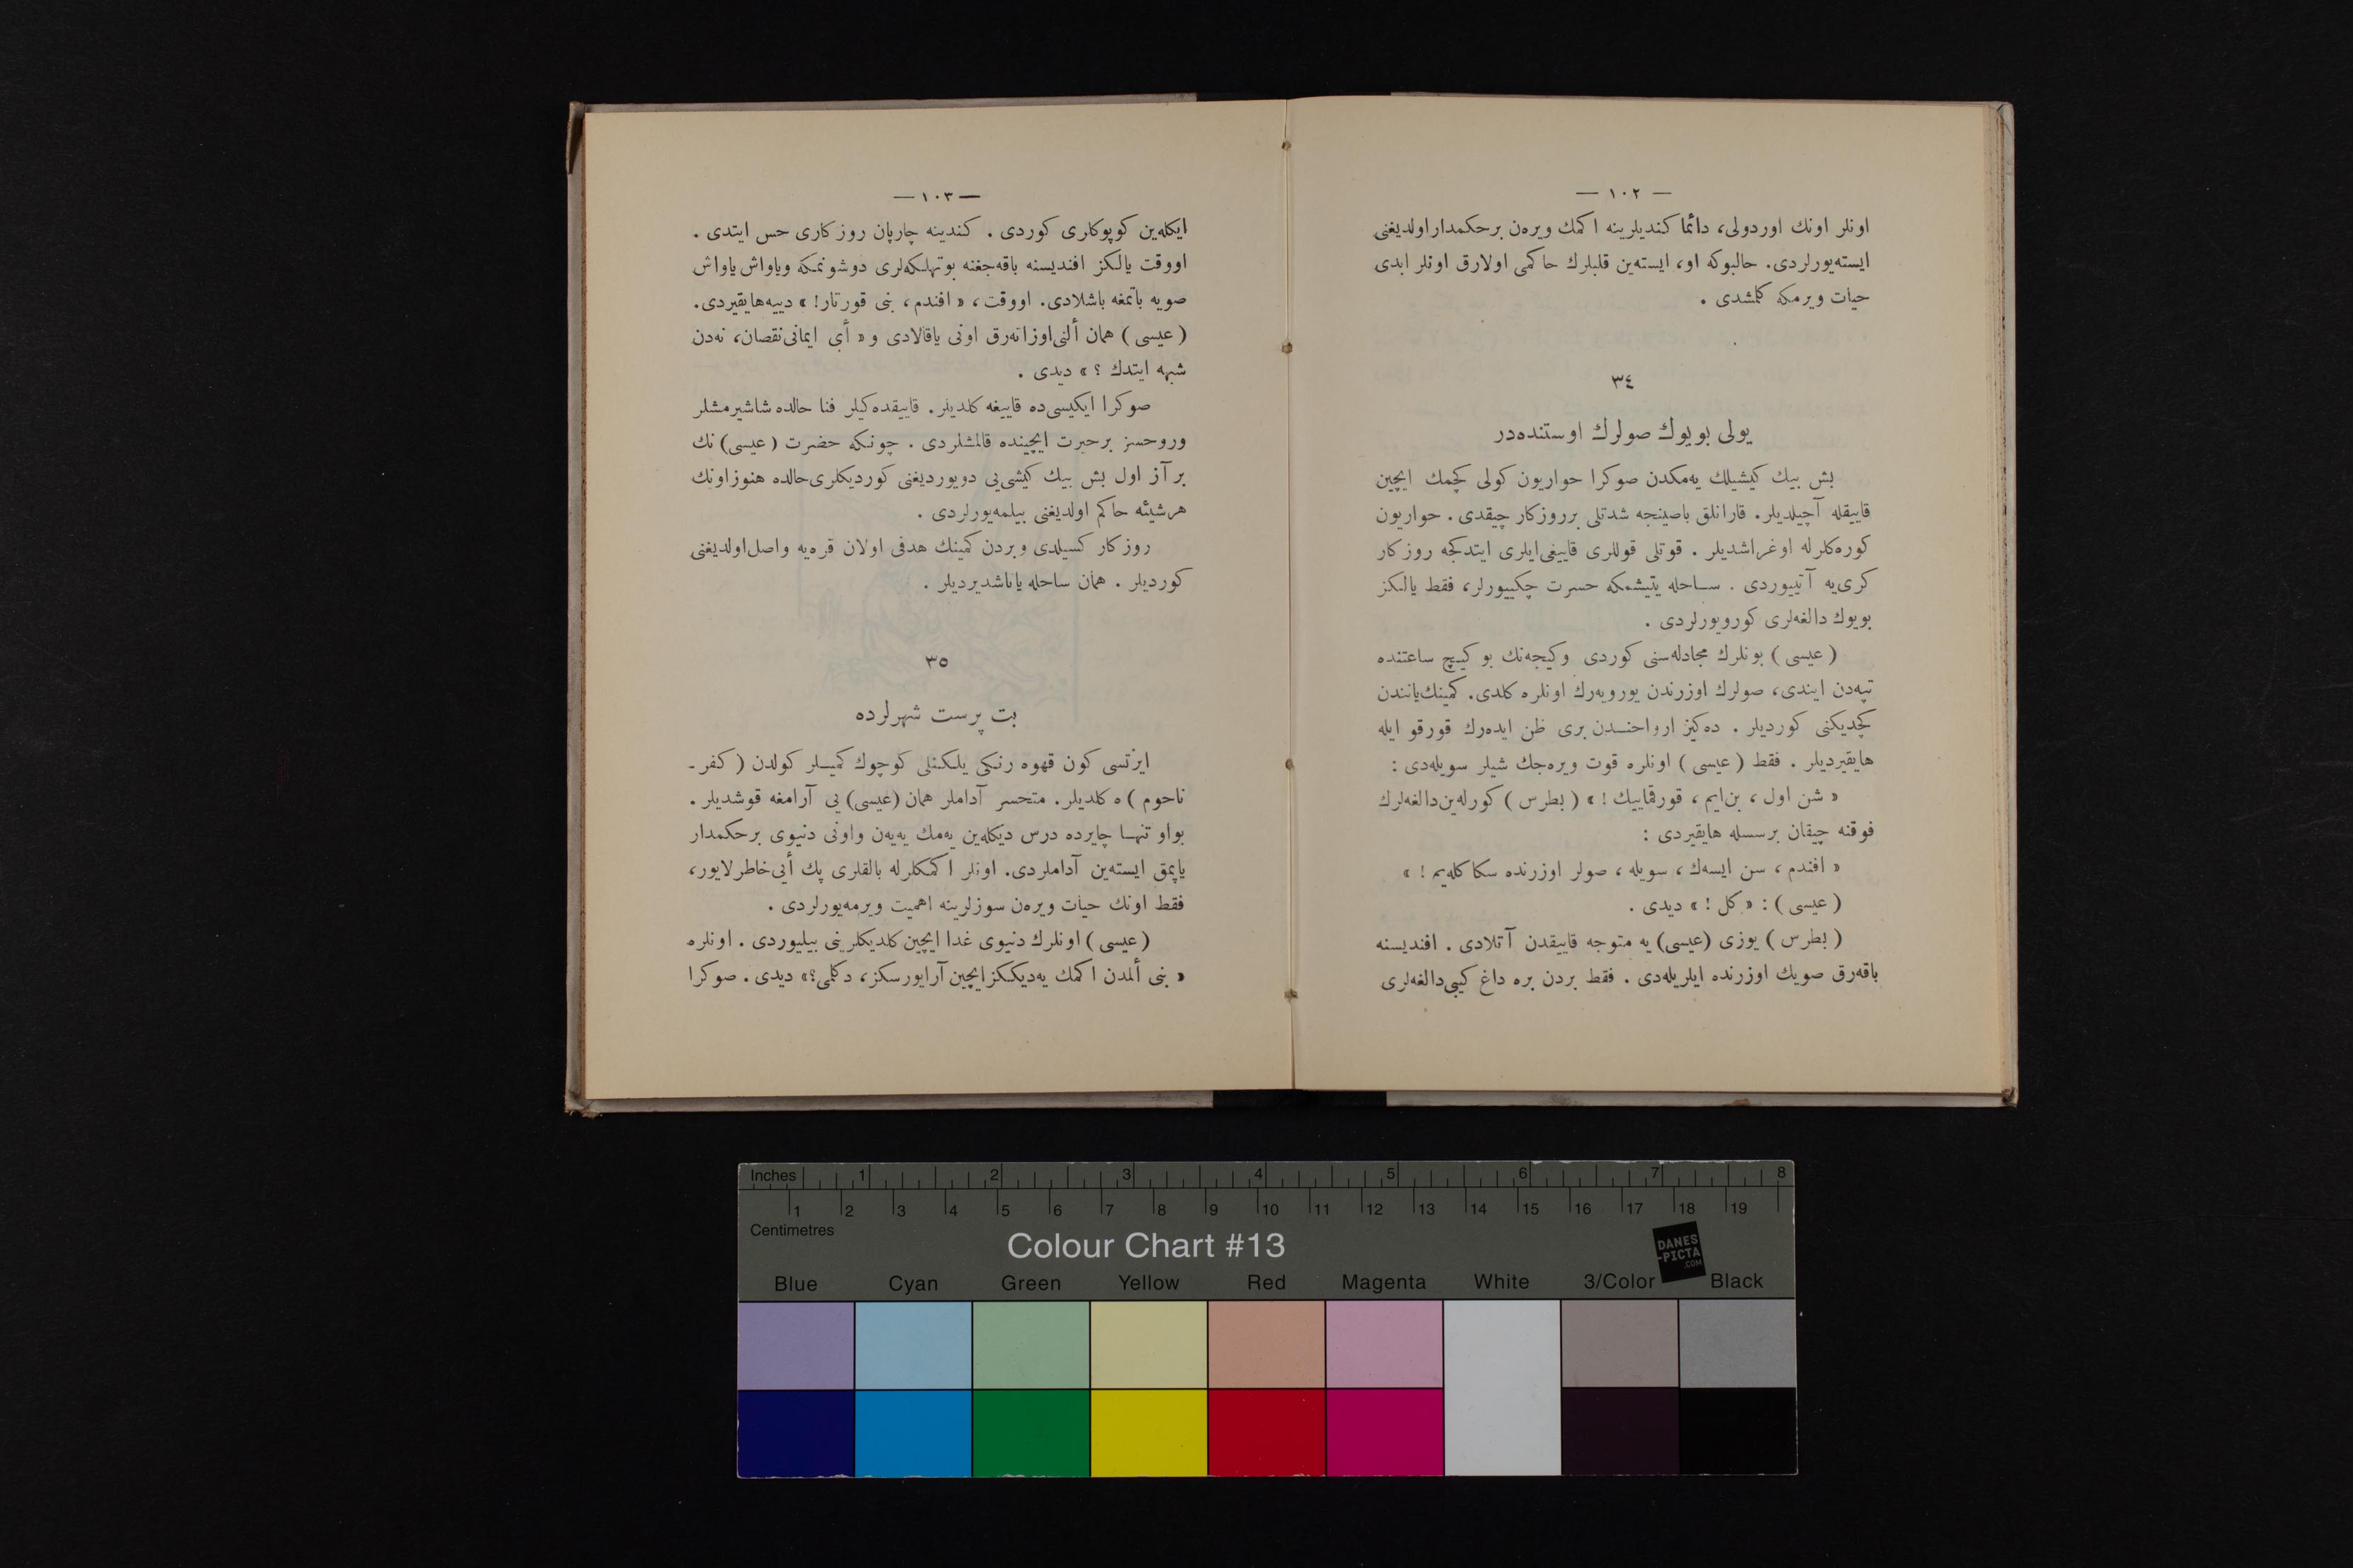 — ١٠٢ —
اونلر اونك اوردولی، دائما كندیلرینه اكمك ویره‌ن برحكمدار اولدیغنی
ایسته‌یورلردی. حالبوكه او، ایسته‌ین قلبلرك حاكمی اولارق اونلر ابدی
حیات ویرمكه كلمشدی .
٣٤
یولی بویوك صولرك اوستنده‌در
بش بیك كیشیلك یه‌مكدن صوكرا حواریون كولی كچمك ایچین
قاییقله آچیلدیلر. قارانلق باصینجه شدتلی برروزكار چیقدی . حواریون
كوره‌كلرله اوغراشدیلر . قوتلی قوللری قاییغی ایلری ایتدكجه روزكار
كری‌یه آتییوردی . ساحله یتیشمكه حسرت چكییورلر، فقط یالكز
بویوك دالغه‌لری كورویورلردی .
( عیسی ) بونلرك مجادله‌سنی كوردی وكیجه‌نك بو كیچ ساعتنده
تپه‌دن ایندی، صولرك اوزرندن یورویه‌رك اونلره كلدی. كمینك یانندن
كچدیكنی كوردیلر . ده‌كیز ارواحندن بری ظن ایده‌رك قورقو ایله
هایقیردیلر . فقط ( عیسی ) اونلره قوت ویره‌جك شیلر سویله‌دی :
« شن اول ، بن‌ایم ، قورقماییك ! » ( بطرس ) كورله‌ین دالغه‌لرك
فوقنه چیقان برسسله هایقیردی :
« افندم ، سن ایسه‌ك ، سویله ، صولر اوزرنده سكا كله‌یم ! »
( عیسی ) : « كل ! » دیدی .
( بطرس ) یوزی (عیسی) یه متوجه قاییقدن آتلادی . افندیسنه
باقه‌رق صویك اوزرنده ایلریله‌دی . فقط بردن بره داغ كیبی دالغه‌لری
— ١٠٣ —
ایكله‌ین كوپوكلری كوردی . كندینه چارپان روزكاری حس ایتدی .
اووقت یالكز افندیسنه باقه‌جغنه بوتهلكه‌لری دوشونمكه ویاواش یاواش
صویه باتمغه باشلادی. اووقت ، « افندم ، بنی قورتار! » دییه‌هایقیردی.
( عیسی ) همان ألنی اوزاته‌رق اونی یاقالادی و « أی ایمانی نقصان، نه‌دن
شبهه ایتدك ؟ » دیدی .
صوكرا ایكیسی ده قاییغه كلدیلر. قاییقده‌كیلر فنا حالده شاشیرمشلر
وروحسز برحیرت ایچینده قالمشلردی . چونكه حضرت ( عیسی ) نك
بر آز اول بش بیك كیشی‌یی دویوردیغنی كوردیكلری حالده هنوز اونك
هرشیئه حاكم اولدیغنی بیلمه‌یورلردی .
روزكار كسیلدی وبردن كمینك هدفی اولان قره‌یه واصل اولدیغنی
كوردیلر . همان ساحله یاناشدیردیلر .
٣٥
بت پرست شهرلرده
ایرتسی كون قهوه رنكی یلكنلی كوچوك كمیلر كولدن ( كفر ـ
ناحوم ) ه كلدیلر. متحسر آداملر همان (عیسی) یی آرامغه قوشدیلر .
بواو تنها چایرده درس دیكله‌ین یه‌مك یه‌یه‌ن واونی دنیوی برحكمدار
یاپمق ایسته‌ین آداملردی. اونلر اكمكلرله بالقلری پك أیی خاطرلایور،
فقط اونك حیات ویره‌ن سوزلرینه اهمیت ویرمه‌یورلردی .
( عیسی ) اونلرك دنیوی غدا ایچین كلدیكلرینی بیلیوردی . اونلره
« بنی ألمدن اكمك یه‌دیككز ایچین آرایورسكز، دكلمی؟» دیدی . صوكرا
Inches 1 2 3 4 5 6 7 8
1 2 3 4 5 6 7 8 9 10 11 12 13 14 15 16 17 18 19
Centimetres
Colour Chart #13
DANES
-PICTA
.COM
Blue Cyan Green Yellow Red Magenta White 3/Color Black